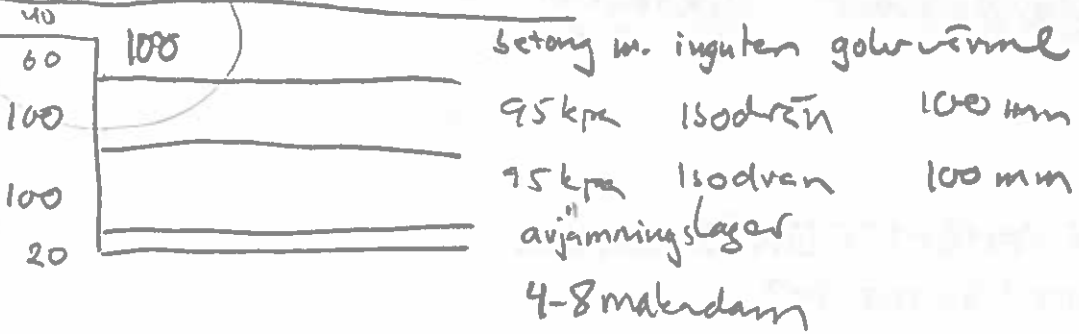 40
60
100
100
100
20
betong m. ingjuten golvvärme
95 kpa Isodrän 100 mm
95 kpa Isodran 100 mm
avjämningslager
4-8 makadam